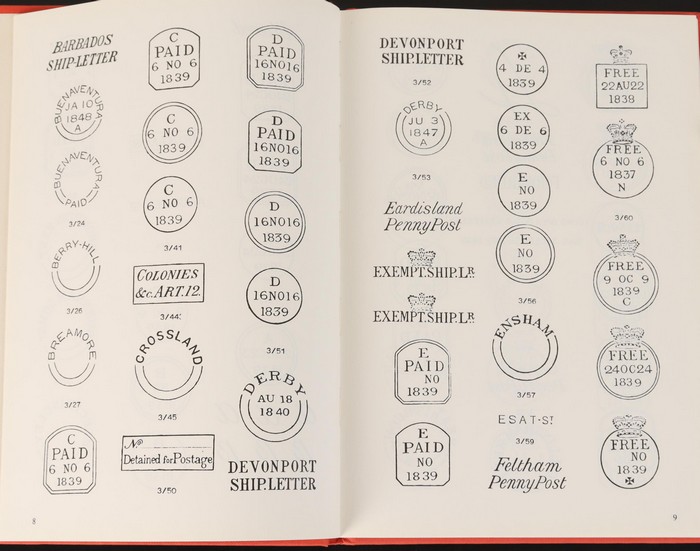 BARBADOS
SHIP-LETTER
BUENAVENTURA
JA 10
1848
A
BUENAVENTURA
PAID
3/24
BERRY-HILL
3/26
BREAMORE
3/27
C
PAID
6 NO 6
1839
C
PAID
6 NO 6
1839
C
6 NO 6
1839
C
6 NO 6
1839
3/41
COLONIES
&c. ART. 12.
3/44
CROSSLAND
3/45
No
Detained for Postage
3/50
D
PAID
16NO16
1839
D
PAID
16NO16
1839
D
16NO16
1839
D
16NO16
1839
3/51
DERBY
AU 18
1840
DEVONPORT
SHIP.LETTER
8
DEVONPORT
SHIP.LETTER
3/52
DERBY
JU 3
1847
A
3/53
Eardisland
Penny Post
EXEMPT.SHIP.LR
EXEMPT.SHIP.LR
E
PAID
NO
1839
E
PAID
NO
1839
4 DE 4
1839
EX
6 DE 6
1839
E
NO
1839
E
NO
1839
3/56
ENSHAM
3/57
ESAT-ST
3/59
Feltham
Penny Post
FREE
22AU22
1838
FREE
6 NO 6
1837
N
3/60
FREE
9 OC 9
1839
C
FREE
24OC24
1839
FREE
NO
1839
9